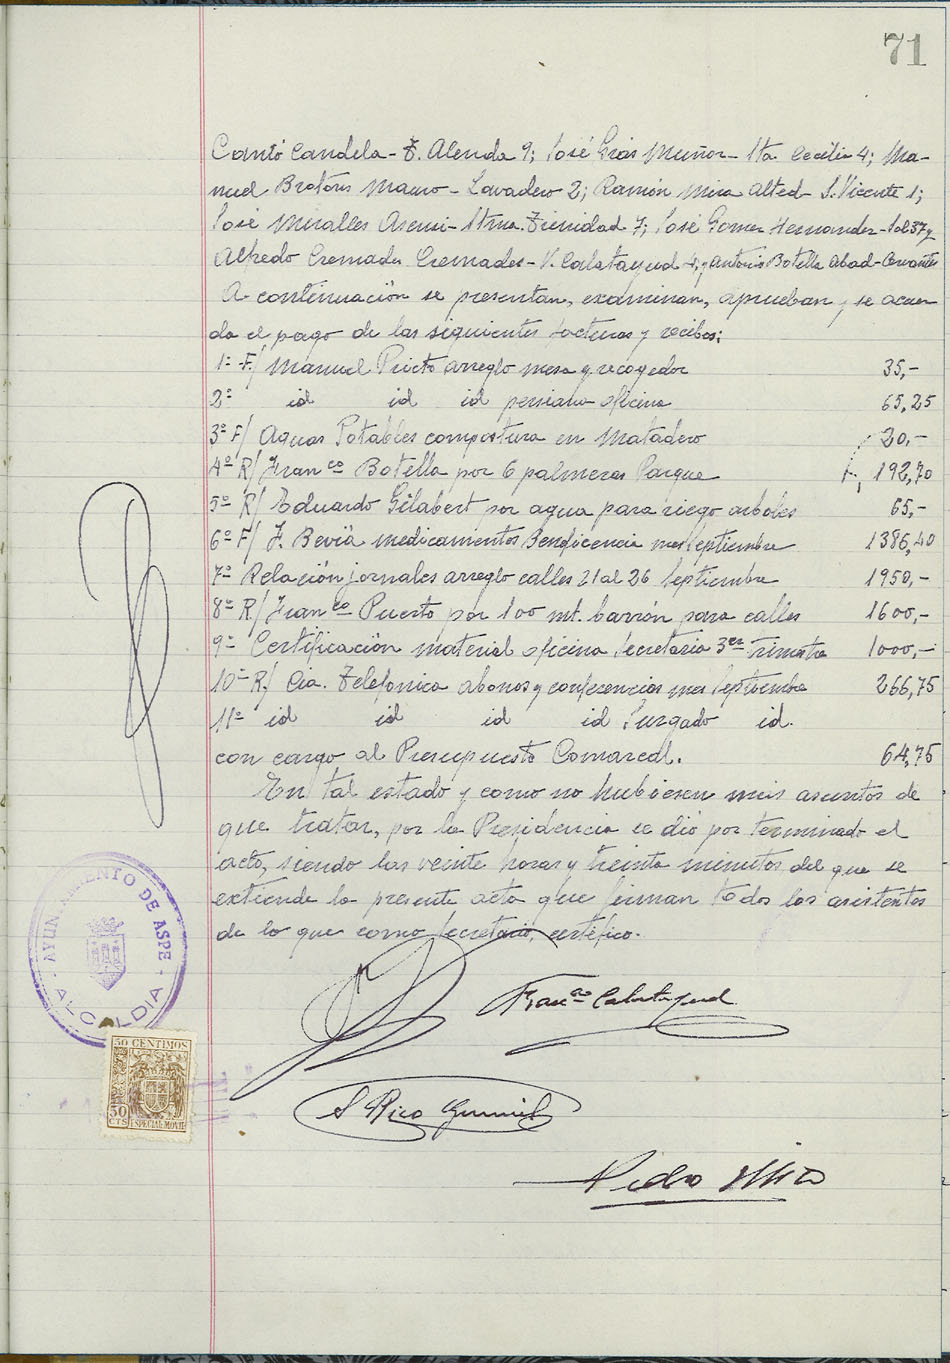 71
Cantó Candela - T. Alenda 9; José Gras Muñoz - Sta. Cecilia 4; Ma-
nuel Brotons Mauro - Lavadero 2; Ramón Mira Alted - S. Vicente 1;
José Miralles Asensi - Stma. Trinidad 7; José Gomez Hernandez - Sol 37 y
Alfredo Cremades Cremades - V. Calatayud 4, y Antonio Botella Abad - Cervantes
A continuación se presentan, examinan, aprueban y se acuer
da el pago de las siguientes facturas y recibos:
1º F/ Manuel Prieto arreglo mesa y recogedor 35,-
2º id id id persiana oficina 65,25
3º F/ Aguas Potables compostura en Matadero 20,-
4º R/ Franco Botella por 6 palmeras Parque 192,70
5º R/ Eduardo Gilabert por agua para riego arboles 65,-
6º F/ J. Beviá medicamentos Beneficencia mes Septiembre 1386,40
7º Relación jornales arreglo calles 21 al 26 Septiembre 1950,-
8º R/ Franco Puerto por 100 mt. barrón para calles 1600,-
9º Certificación material oficina Secretaria 3er Trimestre 1000,-
10º R/ Cia. Telefonica abonos y conferencias mes Septiembre 266,75
11º id id id id Juzgado id.
con cargo al Presupuesto Comarcal. 64,75
En tal estado y como no hubiesen mas asuntos de
que tratar, por la Presidencia se dió por terminado el
acto, siendo las veinte horas y treinta minutos del que se
extiende la presente acta que firman todos los asistentes
de lo que como Secretario, certifico.
AYUNTAMIENTO DE ASPE
- ALCALDIA -
Franco Calatayud
30 CENTIMOS
30
CTS ESPECIAL MOVIL
S Rico
Pedro Mira